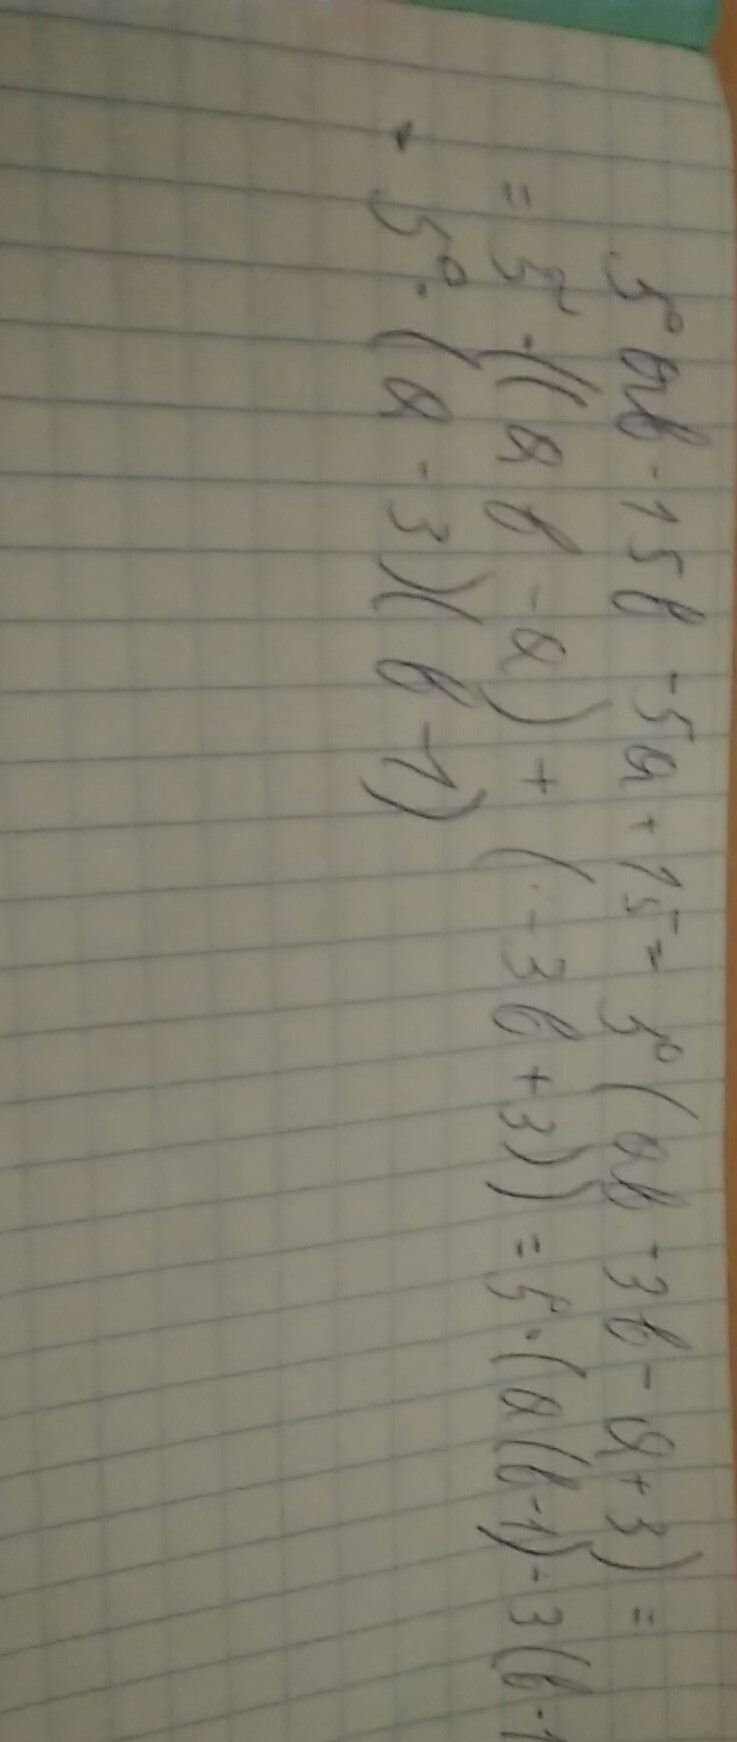 5ab - 15b - 5a + 15 = 5(ab - 3b - a + 3) =
= 5 · ((ab - a) + (-3b + 3)) = 5 · (a(b - 1) - 3(b - 1
5 · (a - 3)(b - 1)